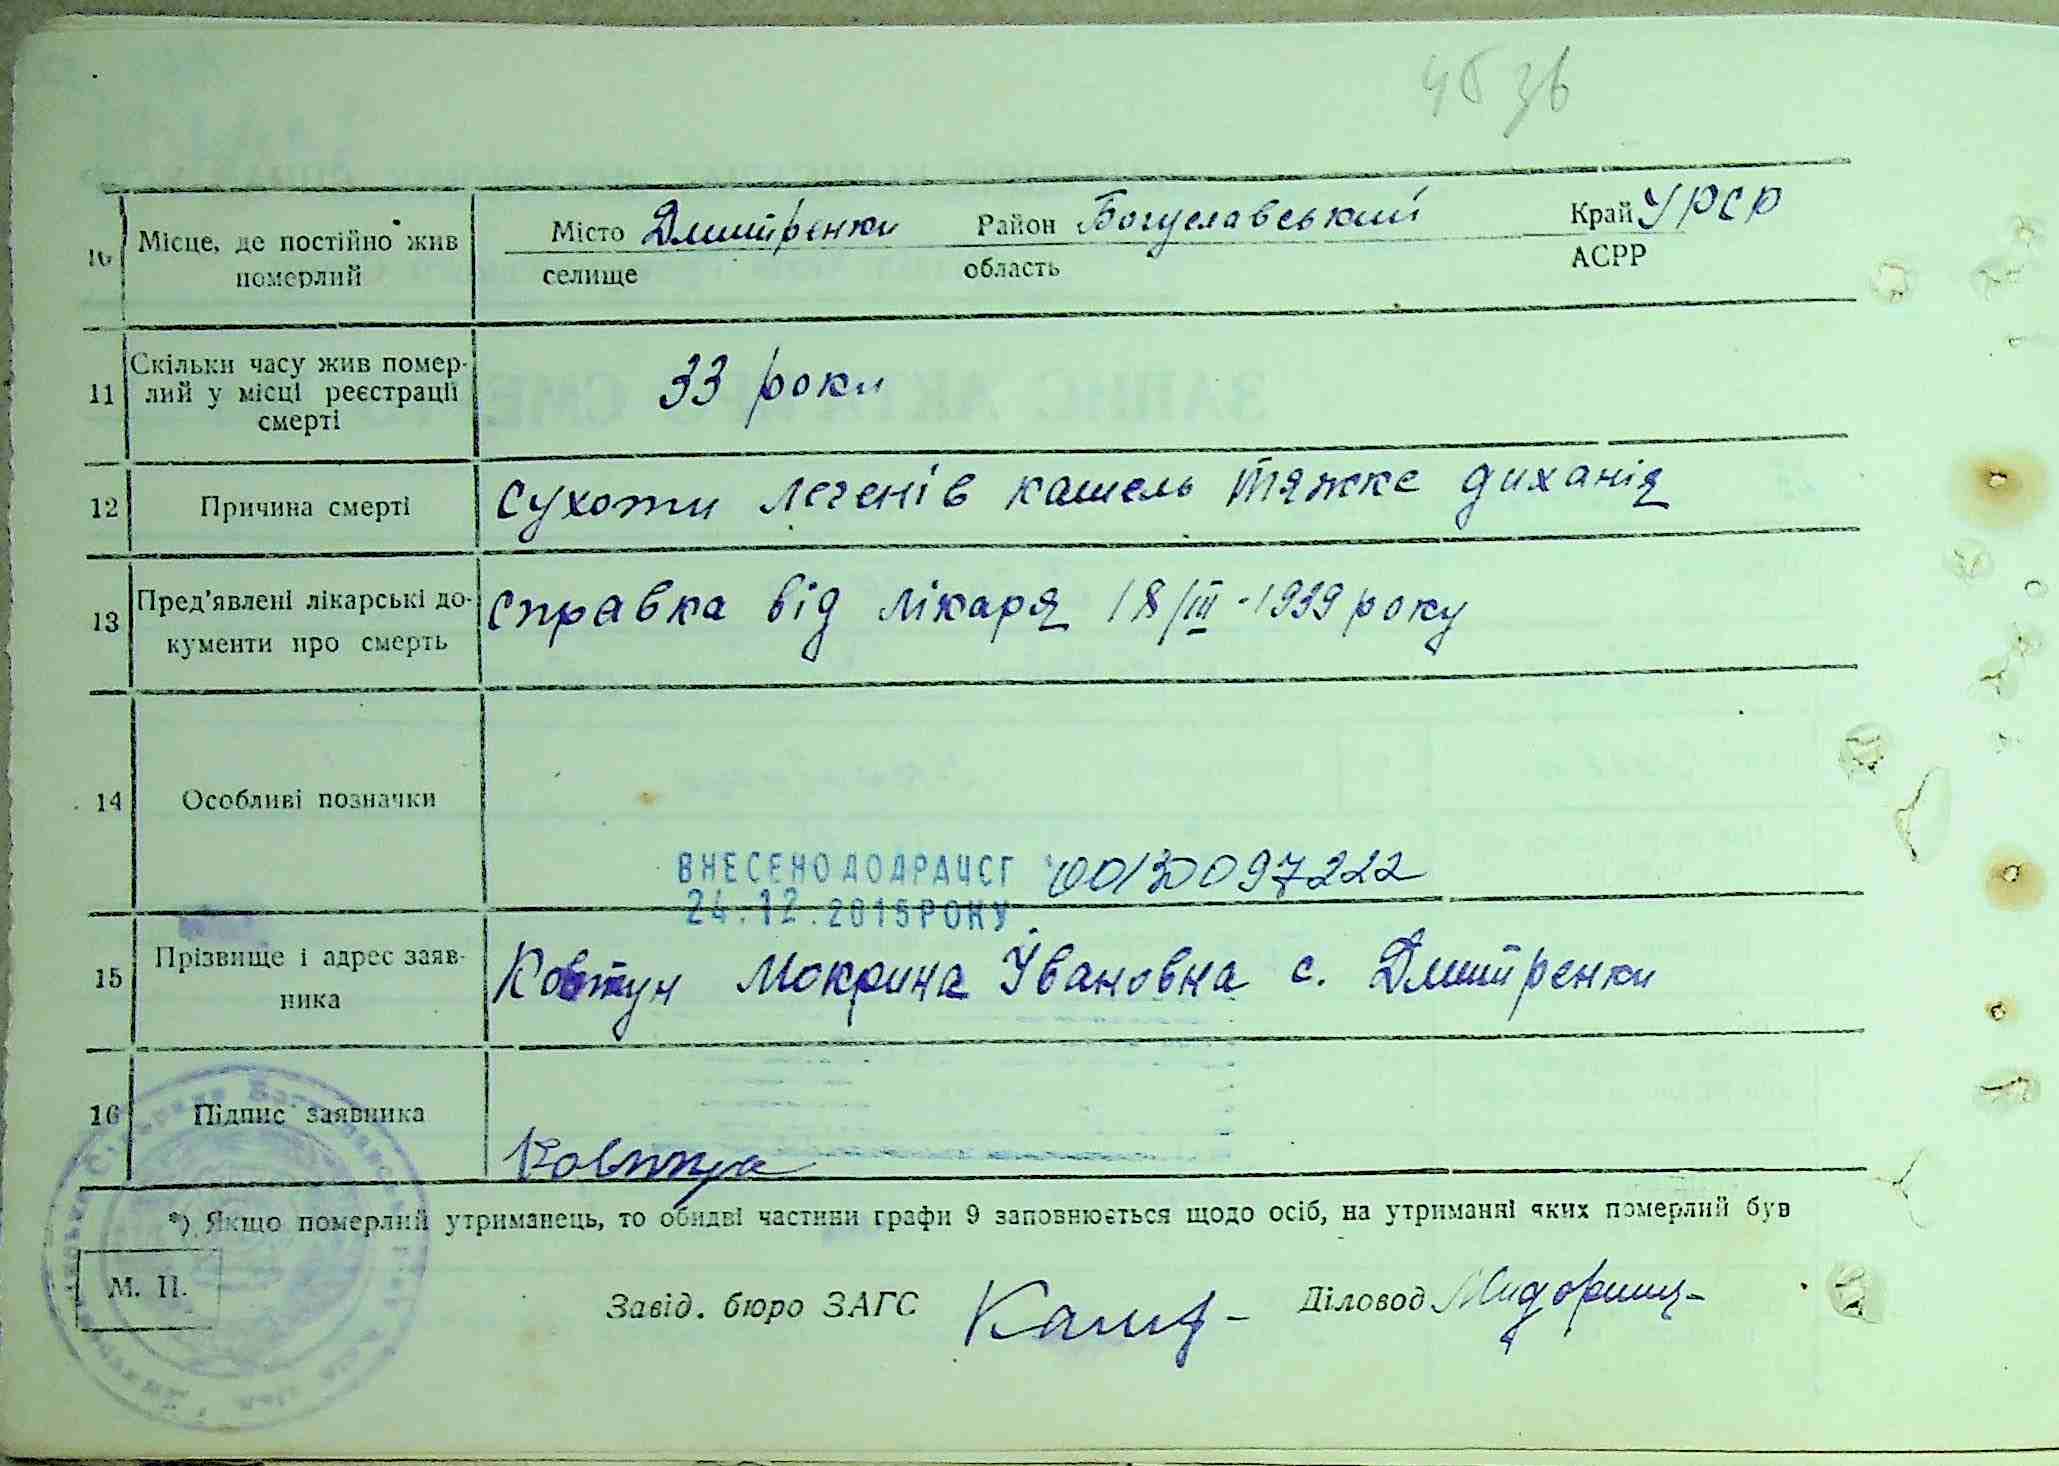 46 зв
10 Місце, де постійно жив померлий
Місто Дмитренки Район Богуславський Край УРСР
селище область АСРР
11 Скільки часу жив померлий у місці реєстрації смерті
33 роки
12 Причина смерті
Сухоти легенів кашель тяжке диханія
13 Пред'явлені лікарські документи про смерть
Справка від лікаря 18/III-1939 року
14 Особливі позначки
ВНЕСЕНО ДО ДРАЦСГ 00130097222
24.12.2015 РОКУ
15 Прізвище і адрес заявника
Ковтун Мокрина Івановна с. Дмитренки
16 Підпис заявника
Ковтун
*) Якщо померлий утриманець, то обидві частини графи 9 заповнюється щодо осіб, на утриманні яких померлий був
М. П.
Завід. бюро ЗАГС Діловод